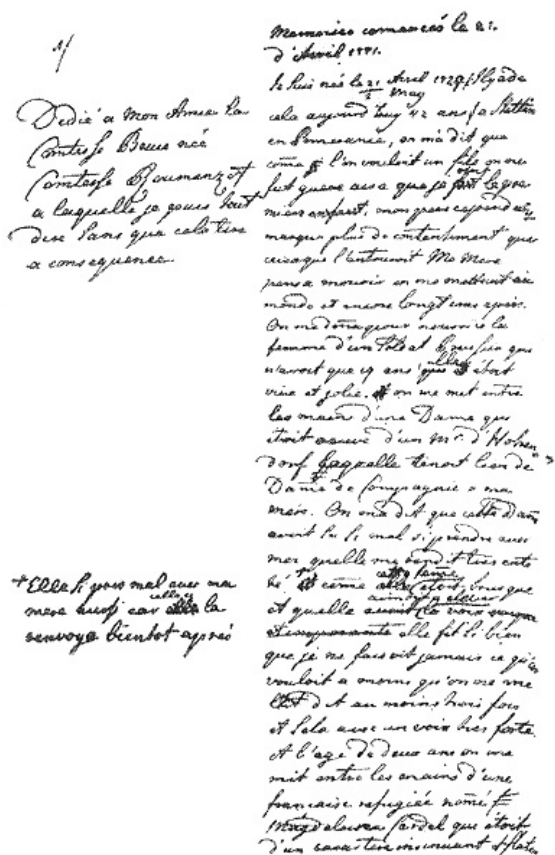 1/
Dedié a mon Amie la
Comtesse Bruce née
Comtesse Roumanzof
a laquelle je pouis tout
dire sans que cela tire
a consequence.
Memoires comencés le 21.
d'Avril 1771.
Je suis née le 21 Avril 1729 / Il y a de
2 May
cela aujourd'huy 42 ans / a Stettin
en Pomeranie, on m'a dit que
come l'on vouloit un fils on ne
fut guere aise que je le pre
mier enfant, mon pere cependant
marqua plus de contentement que
l'entouroit Ma Mere
pensa mourir en me mettant au
monde et encore longtems après.
On me dona pour nourice la
femme d'un soldat Prussien qui
n'avoit que 19 ans elle étoit
vive et jolie. on me mit entre
les mains d'une Dame qui
étoit veuve d'un Mr. d'Hohen
dorf laquelle tenoit lieu de
Dame de Compagnie a ma
mere. On m'a dit que cette Dame
avoit su si mal s'y prendre avec
moi quelle me rendit très enté
té come cette Dame brusque
et quelle la voix
elle fit si bien
que je ne faisoit jamais ce qu'on
vouloit a moins qu'on ne me
l'eut dit au moins trois fois
et cela avec un voix tres forte.
A l'age de deux ans on me
mit entre les mains d'une
française refugiée nomé
Magdaleine Cardel qui étoit
d'un caractere insinuant
+ Elle si pris mal avec ma
mere aussi car celle-ci la
renvoya bientot après